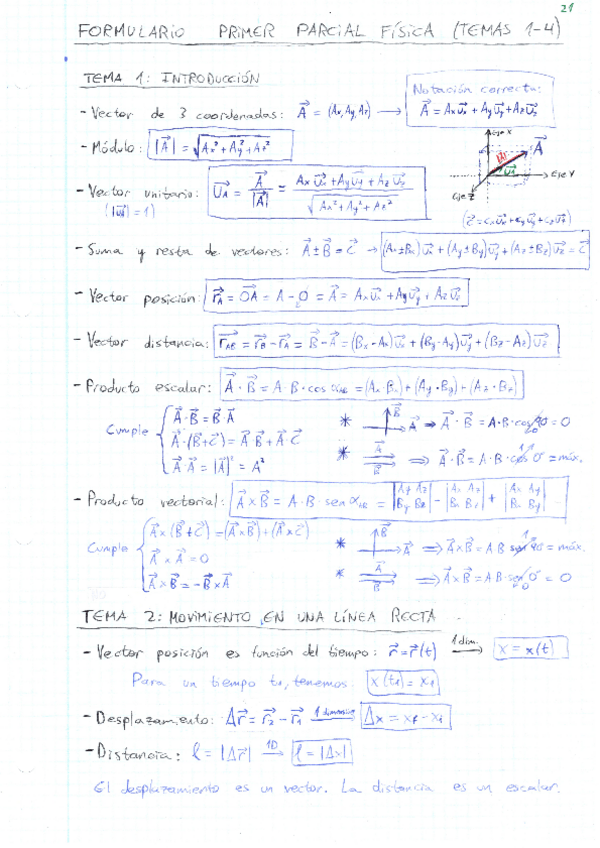 21
FORMULARIO PRIMER PARCIAL FÍSICA (TEMAS 1-4)
TEMA 1: INTRODUCCIÓN
Notación correcta:
- Vector de 3 coordenadas: A⃗ = (Ax, Ay, Az) → A⃗ = Ax u⃗x + Ay u⃗y + Az u⃗z
- Módulo: |A⃗| = √(Ax² + Ay² + Az²)
Eje X
A⃗
|A⃗|
u⃗A
Eje Y
Eje Z
- Vector unitario: u⃗A = A⃗/|A⃗| = (Ax u⃗x + Ay u⃗y + Az u⃗z)/√(Ax² + Ay² + Az²)
(|u⃗A| = 1)
(C⃗ = Cx u⃗x + Cy u⃗y + Cz u⃗z)
- Suma y resta de vectores: A⃗ ± B⃗ = C⃗ → (Ax ± Bx) u⃗x + (Ay ± By) u⃗y + (Az ± Bz) u⃗z = C⃗
- Vector posición: r⃗A = O⃗A = A - O = A⃗ = Ax u⃗x + Ay u⃗y + Az u⃗z
- Vector distancia: r⃗AB = r⃗B - r⃗A = B⃗ - A⃗ = (Bx - Ax) u⃗x + (By - Ay) u⃗y + (Bz - Az) u⃗z
- Producto escalar: A⃗ · B⃗ = A · B · cos αAB = (Ax · Bx) + (Ay · By) + (Az · Bz)
Cumple { A⃗ · B⃗ = B⃗ · A⃗
A⃗ · (B⃗ + C⃗) = A⃗ · B⃗ + A⃗ · C⃗
A⃗ · A⃗ = |A⃗|² = A²
* B⃗ A⃗ ⇒ A⃗ · B⃗ = A · B · cos 90 = 0
0
* A⃗ B⃗ ⇒ A⃗ · B⃗ = A · B · cos 0° = máx.
1
- Producto vectorial: A⃗ × B⃗ = A · B · sen αAB = |Ay Az| - |Ax Az| + |Ax Ay|
|By Bz| |Bx Bz| |Bx By|
Cumple { A⃗ × (B⃗ + C⃗) = (A⃗ × B⃗) + (A⃗ × C⃗)
A⃗ × A⃗ = 0
A⃗ × B⃗ = - B⃗ × A⃗
* B⃗ A⃗ ⇒ A⃗ × B⃗ = A B sen 90 = máx.
1
* A⃗ B⃗ ⇒ A⃗ × B⃗ = A B · sen 0° = 0
0
TEMA 2: MOVIMIENTO EN UNA LÍNEA RECTA
- Vector posición es función del tiempo: r⃗ = r⃗(t) 1 dim. → x = x(t)
Para un tiempo t1, tenemos: x(t1) = x1
- Desplazamiento: Δr⃗ = r⃗2 - r⃗1 1 dimensión → Δx = xf - xi
- Distancia: l = |Δr⃗| 1D → l = |Δx|
El desplazamiento es un vector. La distancia es un escalar.